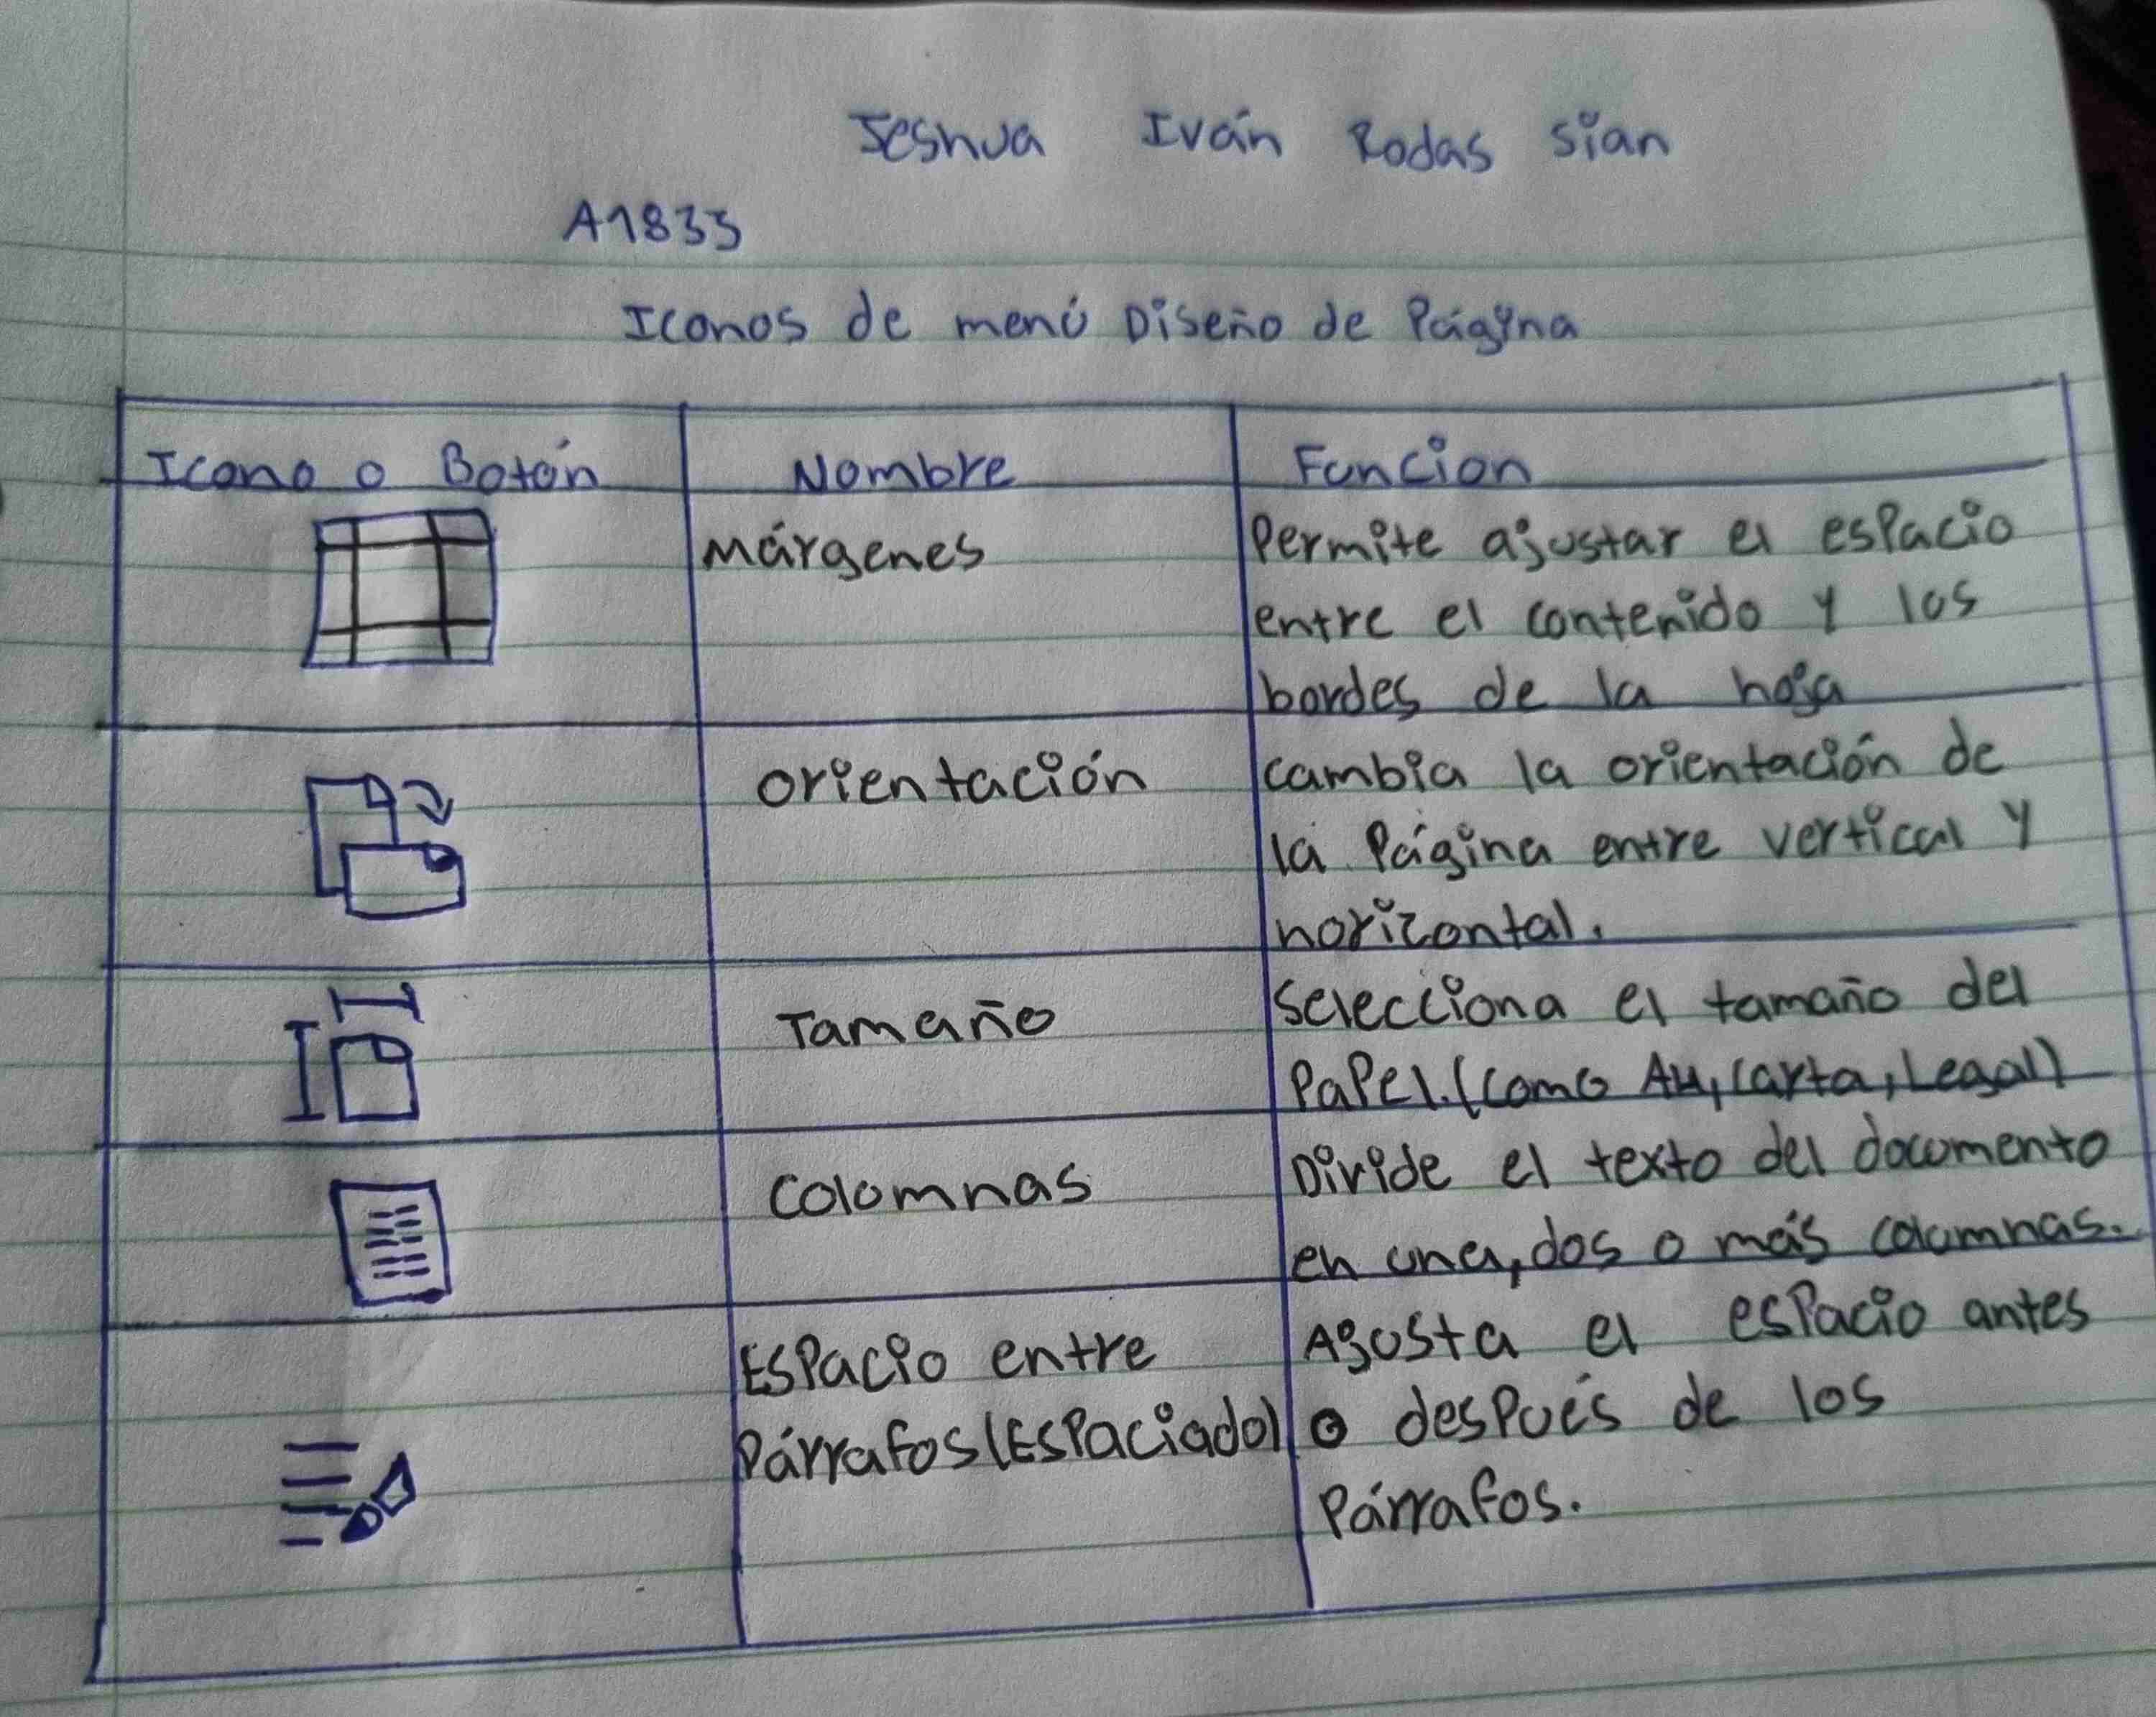 Jeshua Iván Rodas Sian
A1835
Iconos de menú Diseño de Página
Icono o Botón Nombre Funcion
Márgenes
Permite ajustar el espacio
entre el contenido y los
bordes de la hoja
orientación
cambia la orientación de
la Página entre vertical y
horizontal.
Tamaño
Selecciona el tamaño del
Papel.(como A4, Carta, Legal)
Columnas
Divide el texto del documento
en una, dos o más columnas.
Espacio entre
Párrafos (Espaciado)
Ajusta el espacio antes
o después de los
Párrafos.